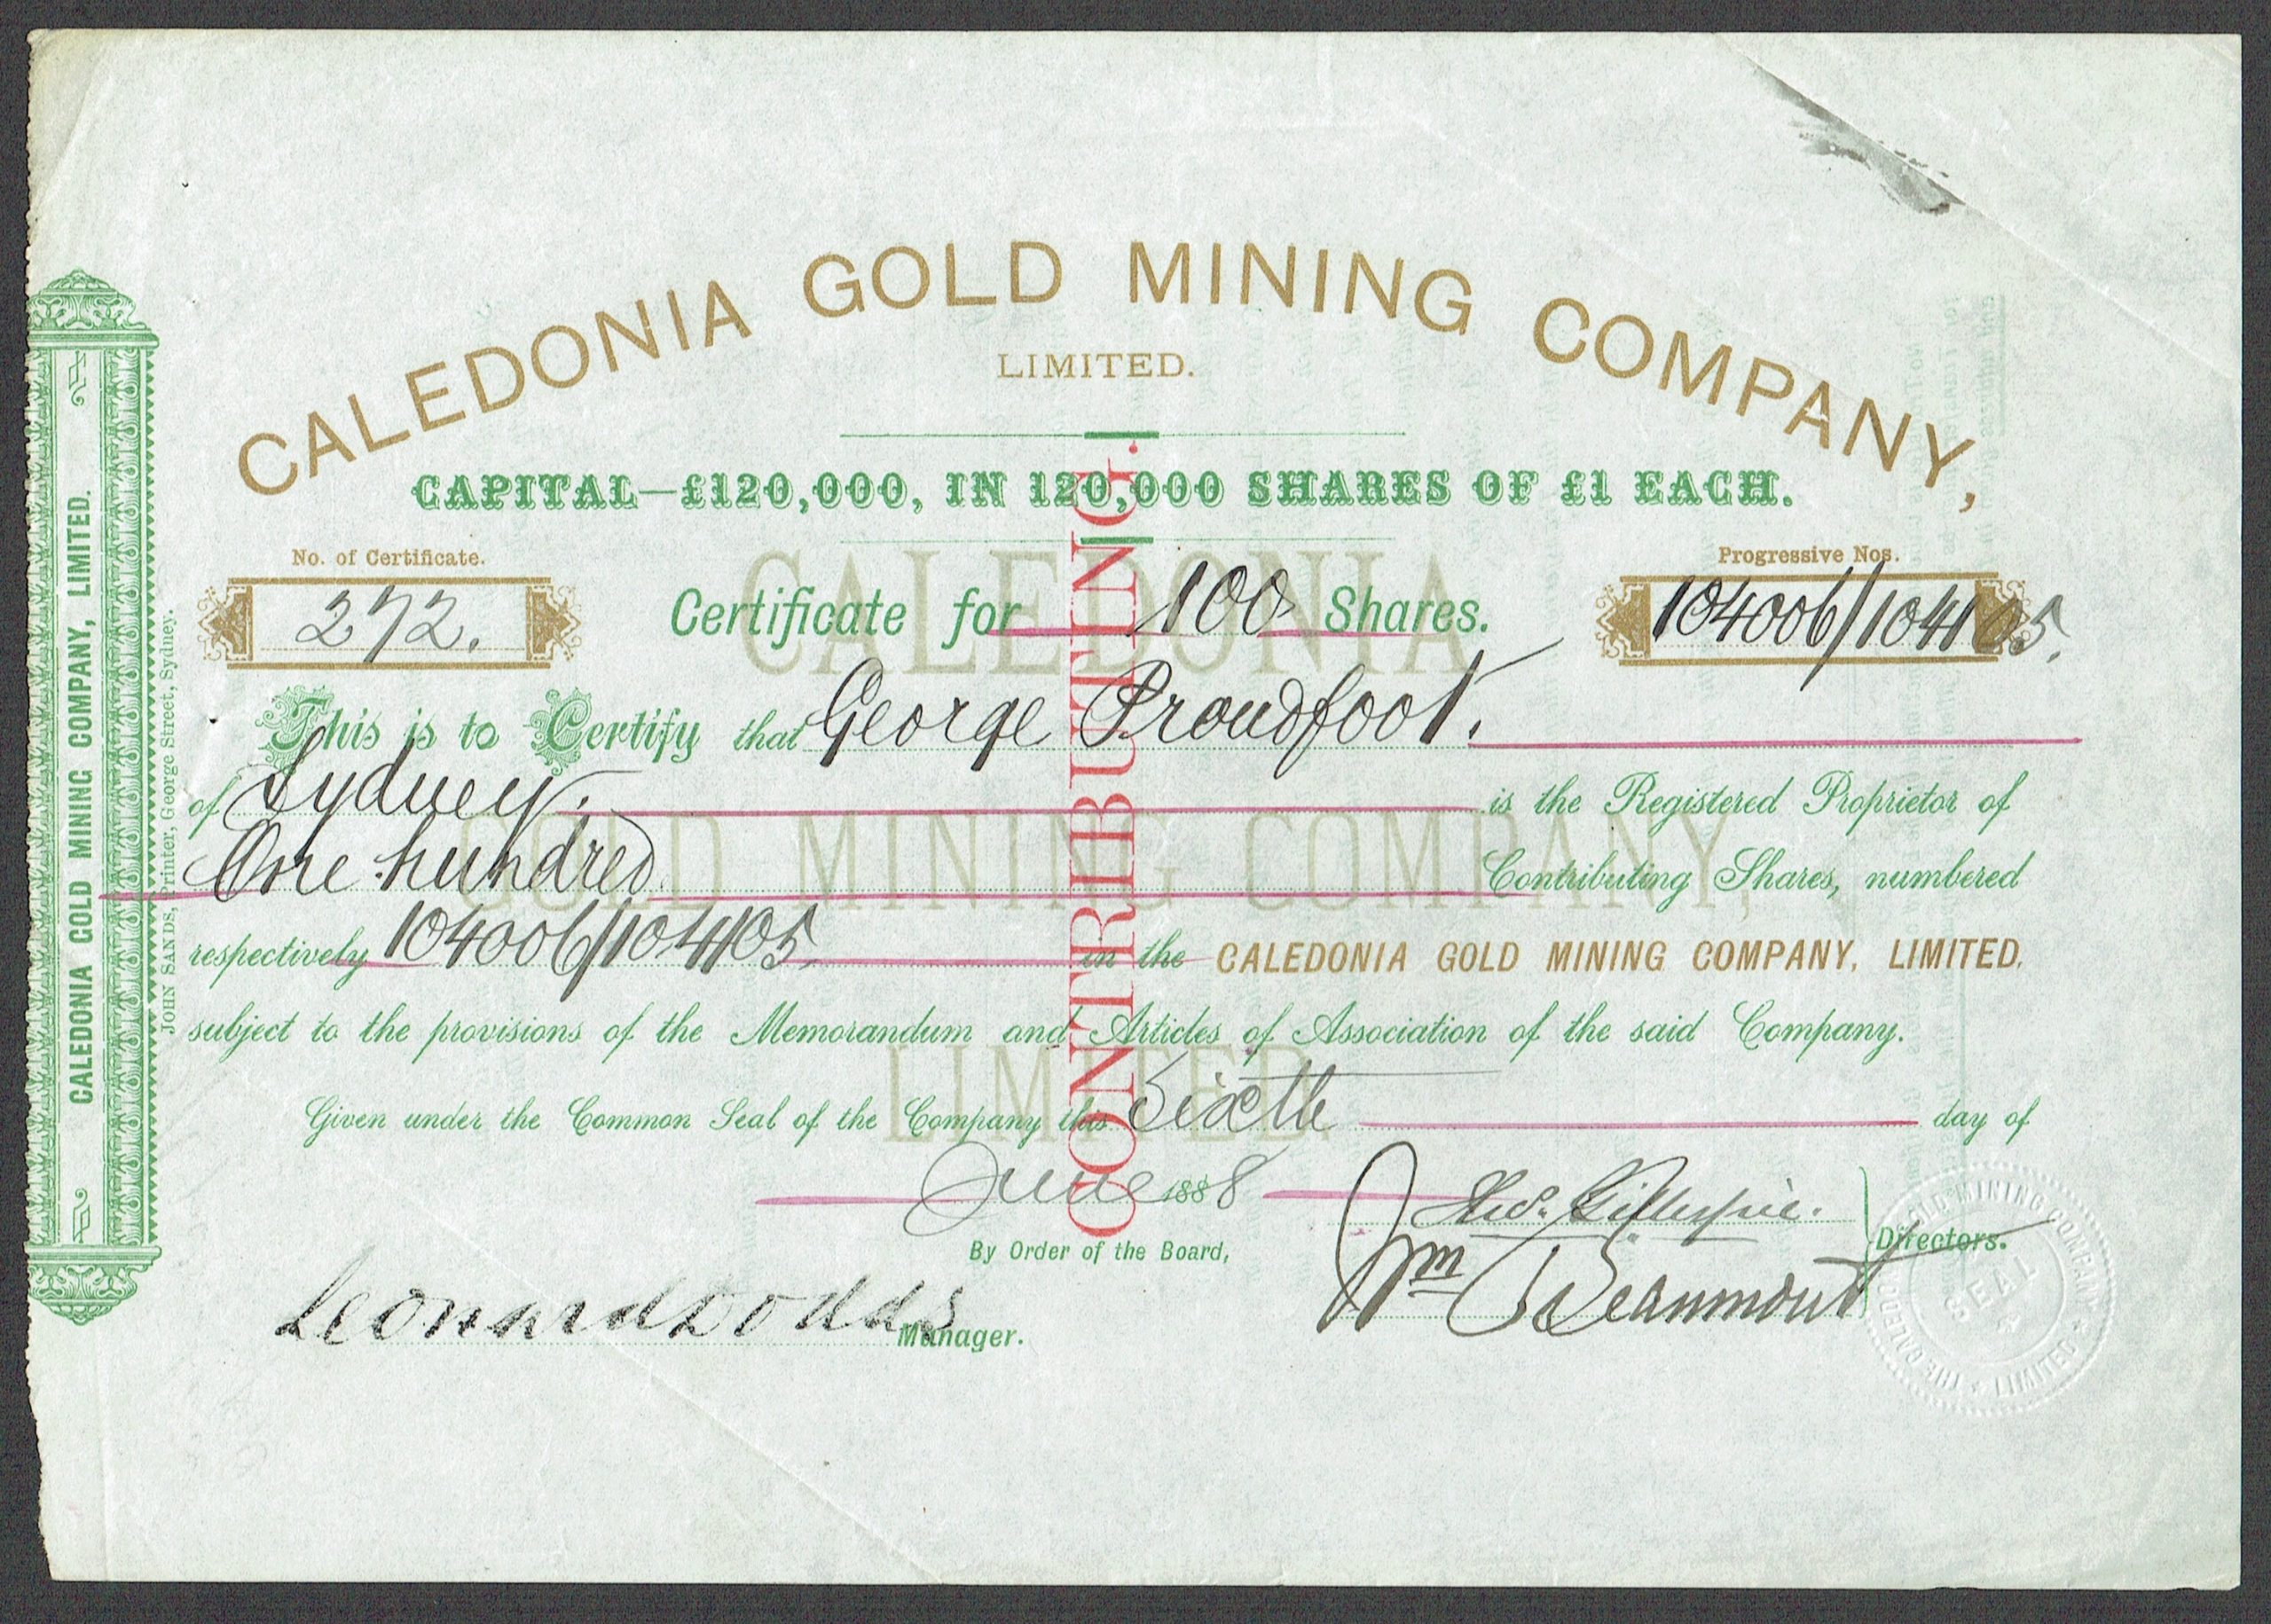 CALEDONIA GOLD MINING COMPANY,
LIMITED.
CAPITAL—£120,000, IN 120,000 SHARES OF £1 EACH.
No. of Certificate.
272.
Certificate for 100 Shares.
Progressive Nos.
104006/104105.
This is to Certify that George Proudfoot.
of Sydney. is the Registered Proprietor of
One hundred Contributing Shares, numbered
respectively 104006/104105. in the CALEDONIA GOLD MINING COMPANY, LIMITED.
subject to the provisions of the Memorandum and Articles of Association of the said Company.
Given under the Common Seal of the Company this Sixth day of
June 1888
By Order of the Board,
Gillespie.
Wm Beaumont
Directors.
Leonard Dodds
Manager.
CONTRIBUTING.
CALEDONIA
GOLD MINING COMPANY,
LIMITED.
CALEDONIA GOLD MINING COMPANY, LIMITED.
JOHN SANDS, Printer, George Street, Sydney.
THE CALEDONIA GOLD MINING COMPANY LIMITED
SEAL